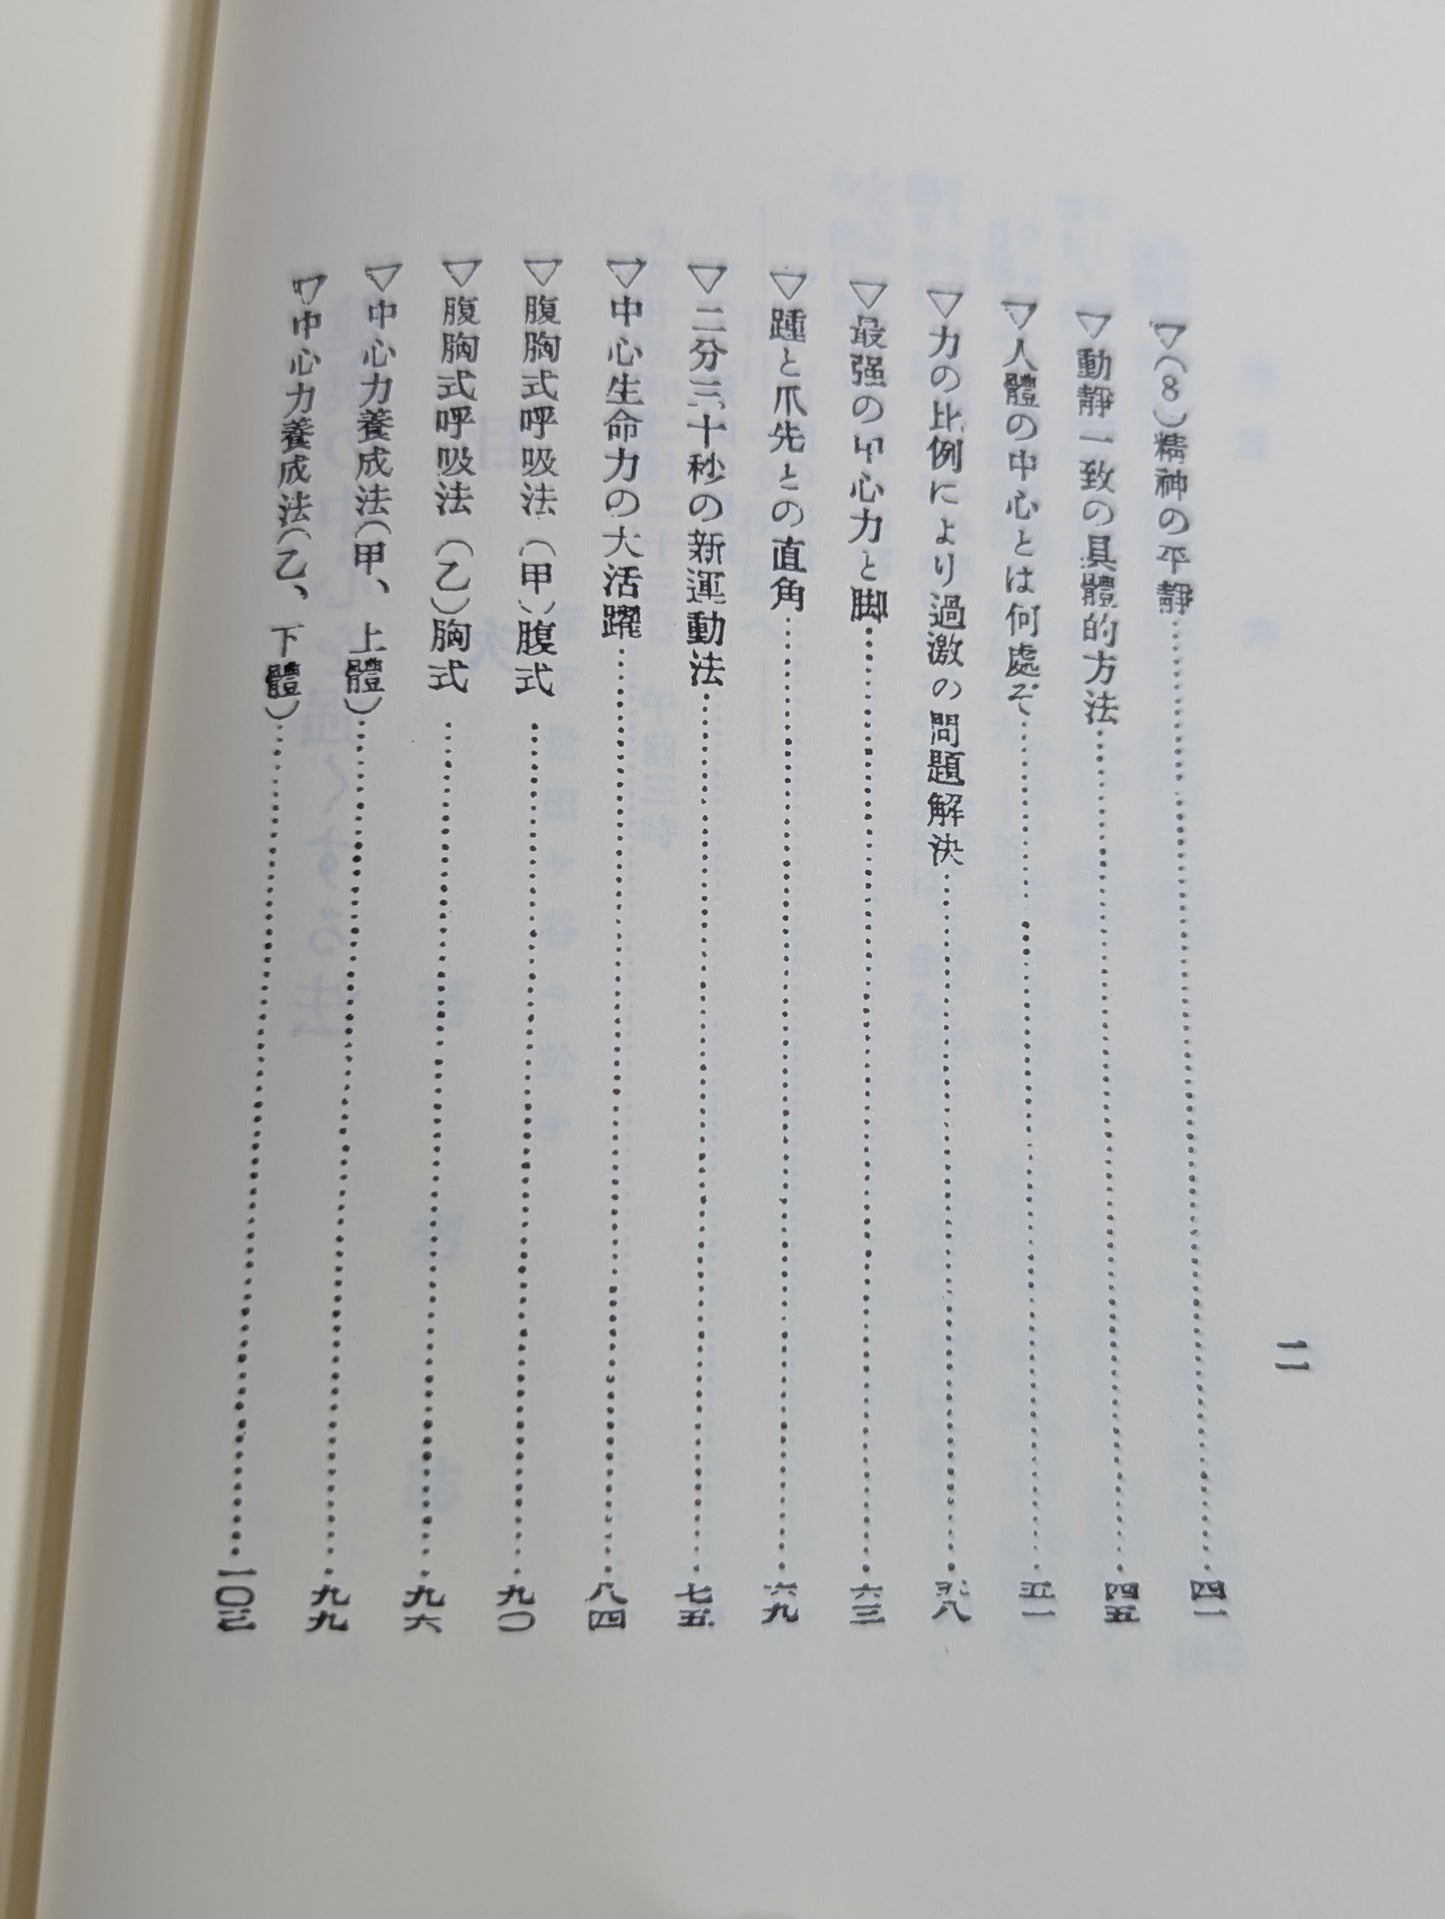 二
▽(8)精神の平靜……四一
▽動靜一致の具體的方法……四五
▽人體の中心とは何處ぞ……五一
▽力の比例により過激の問題解決……五八
▽最强の中心力と脚……六三
▽踵と爪先との直角……六九
▽二分三十秒の新運動法……七五
▽中心生命力の大活躍……八四
▽腹胸式呼吸法(甲)腹式……九〇
▽腹胸式呼吸法(乙)胸式……九六
▽中心力養成法(甲、上體)……九九
▽中心力養成法(乙、下體)……一〇三